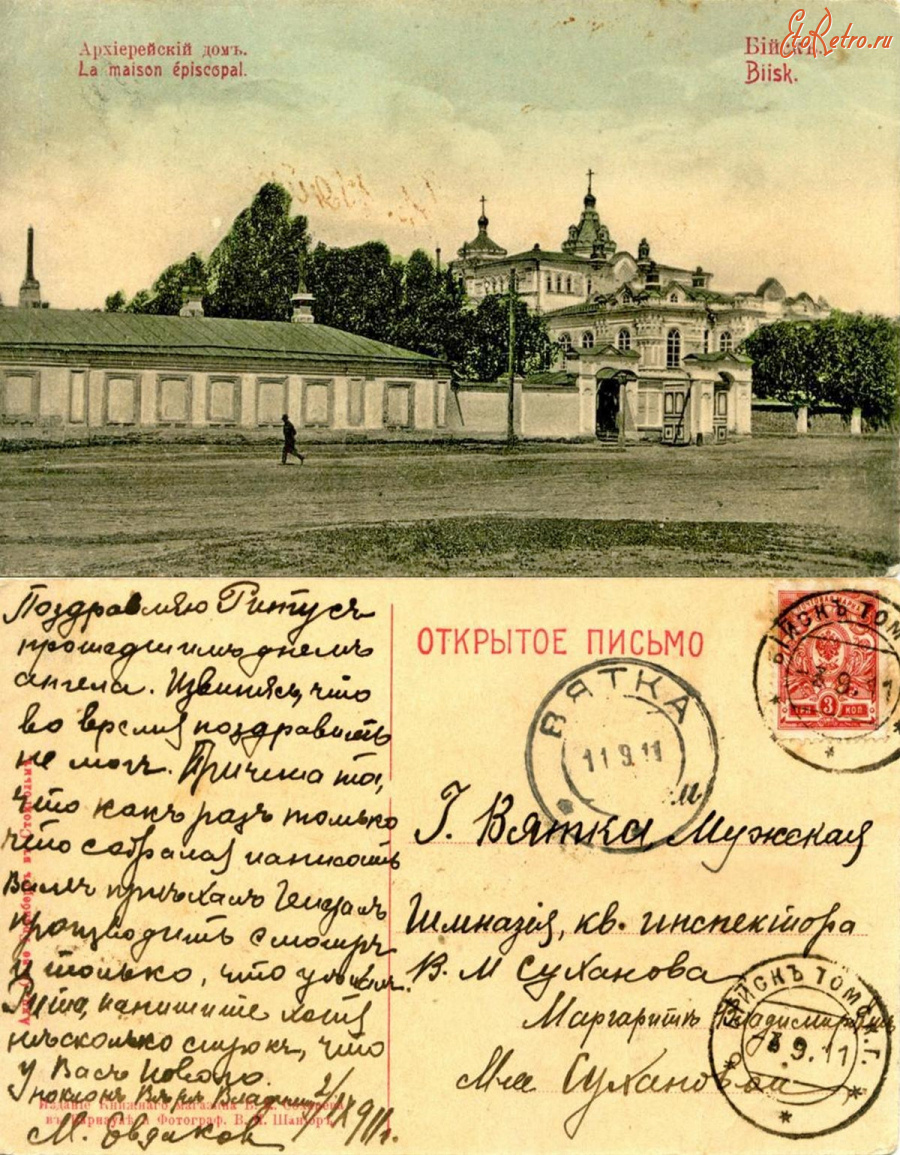 Архіерейскій домъ.
La maison épiscopal.
Бійскъ.
Biisk.
EtoRetro.ru
Поздравляю Ритуся
прошедшимъ днемъ
ангела. Извиняюсь, что
во время поздравить
не могъ. Причина та,
что какъ разъ только
что собрался написать
Вамъ пріѣхалъ
производить смотръ
и только, что уѣхалъ.
Рита, напишите хотя
нѣсколько строкъ, что
у Васъ новаго.
поклонъ Вѣрѣ Владим
2/IX 911 г.
М. Евдаков
Изданіе Книжнаго магазина
въ Барнаулѣ и Фотограф. В.
въ Стокгольмѣ
ОТКРЫТОЕ ПИСЬМО
ВЯТКА
11.9.11
БІЙСКЪ ТОМ
9. 11
3 КОП
Г. Вятка Мужская
Гимназія, кв. инспектора
В. М Суханова
Маргаритѣ Владимировнѣ
М-ль Сухановой
БІЙСКЪ ТОМСК. Г.
3.9.11